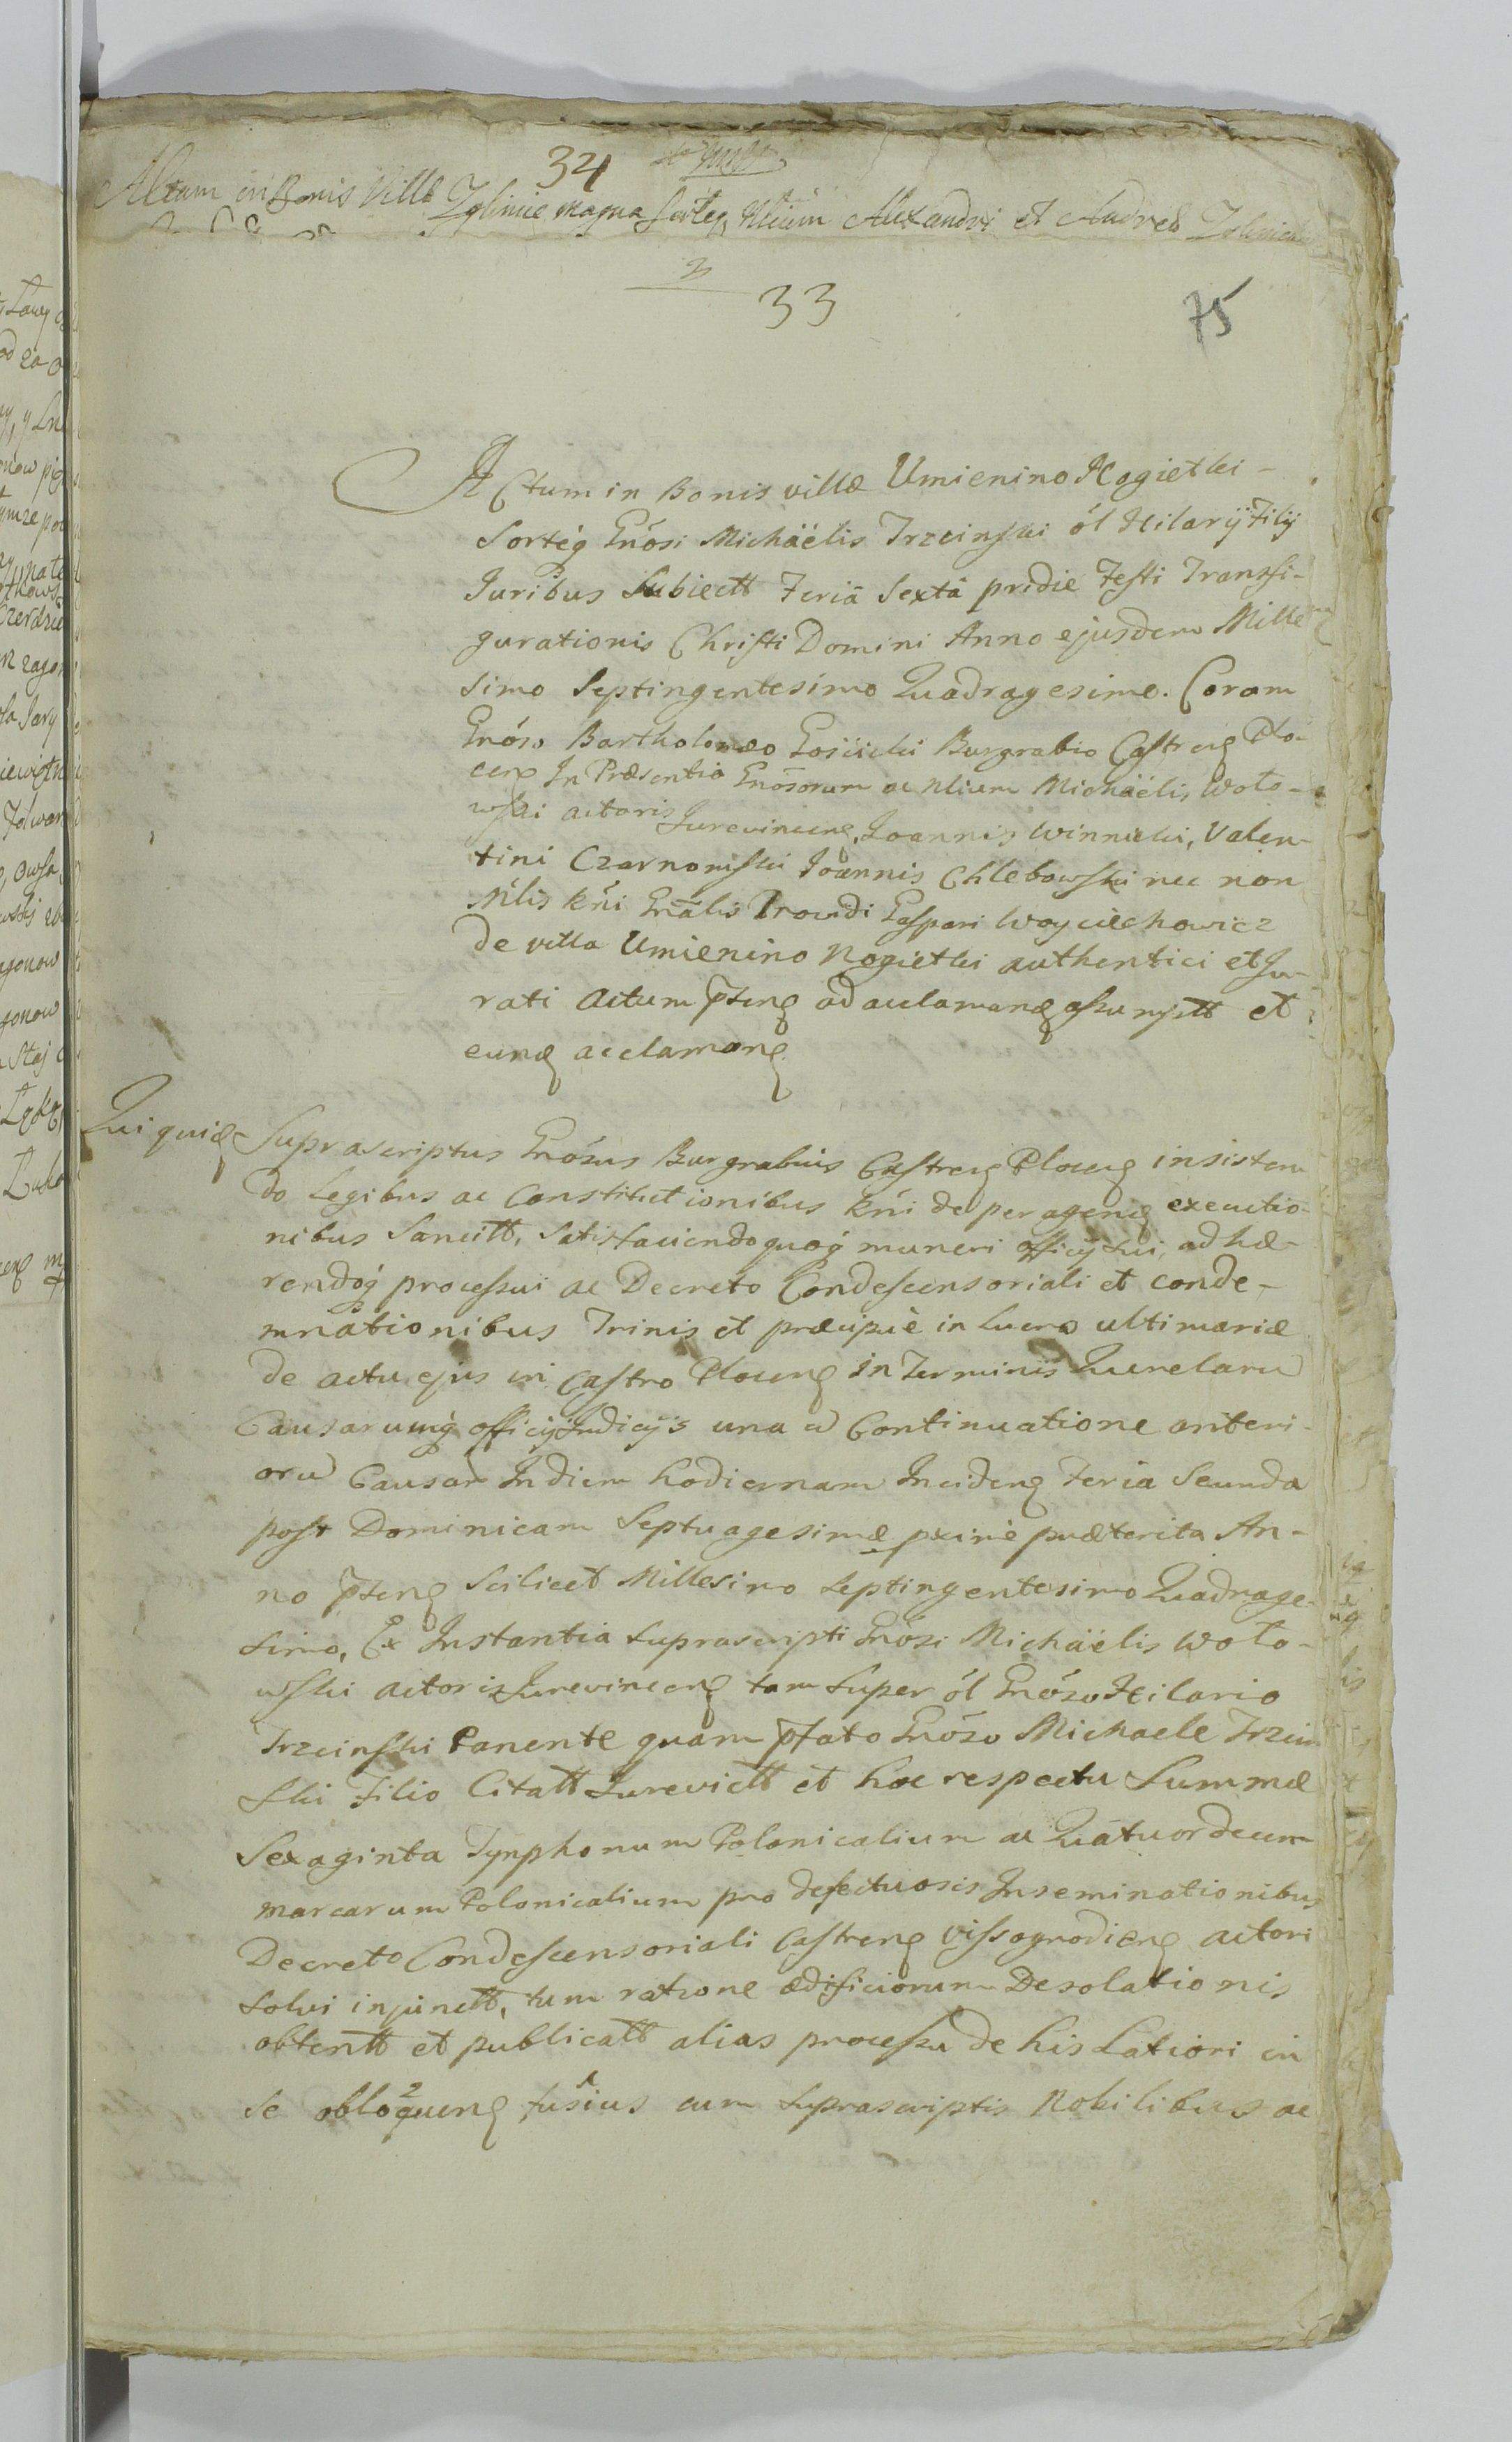 34
Actum in Bonis Villæ Zglinice magna sorteq Nlium Alexandri et Andreæ
33
75
Actum in Bonis villæ Umienino Rogietki
Sorteq Gnósi Michäëlis Trzcinski ól Hilarij Filij
Juribus Subiectt Feriā Sextâ pridie Festi Transfi-
gurationis Christi Domini Anno ejusdem Mille
simo Septingentesimo Quadragesimo. Coram
Gnóso Bartholomæo Gosiicki Burgrabio Castren Plo-
cen In Præsentia Gnosorum ac Nlium Michäëlis Woło-
wski actoris Jurevincen, Joannis Winnicki, Valen-
tini Czarnomski Joannis Chlebowski nec non
Nlis Rńi Gnālis Providi Caspari Woyciechowicz
de villa Umienino Rogietki authentici et Ju-
rati actum pten ad acclamand assumptt et
eund acclaman
Qui quid Suprascriptus Gnósus Burgrabius Castren Plocen insisten
do Legibus ac Constitutionibus Rńi de peragend executio-
nibus Sancitt, Satisfaciendo quoq muneri officij Sui, adhæ-
rendoq processui ac Decreto Condescensoriali et conde-
mnātionibus Trinis et præcipuè in Lucro ultimariæ
de actu ejus in Castro Plocen in Terminis Querelaru
Causarumq officij Judicijs una cū Continuatione anteri-
orū Causar In diem hodiernam Inciden Feria Secunda
post Dominicam Septuagesimæ pximè præterita An-
no pten Scilicet Millesimo Septingentesimo Quadrage-
simo, Ex Instantia suprascripti Gnósi Michäëlis Woło-
wski actoris Jurevincen tam super ól Gnóso Hilario
Trzcinski Parente quam pfato Gnóso Michaele Trzcin
ski Filio Citatt Jurevictt et hoc respectu Summæ
Sexaginta Tynphonum Polonicalium ac Quātuordecem
marcarum Polonicalium pro defectuosis Inseminationibus
Decreto Condescensoriali Castren Vissogrodien actori
solvi injunctt, tum ratione ædificiorum Desolationis
obtentt et publicatt alias processu de his Latiori in
se obloquen fusius cum suprascriptis Nobilibus ac